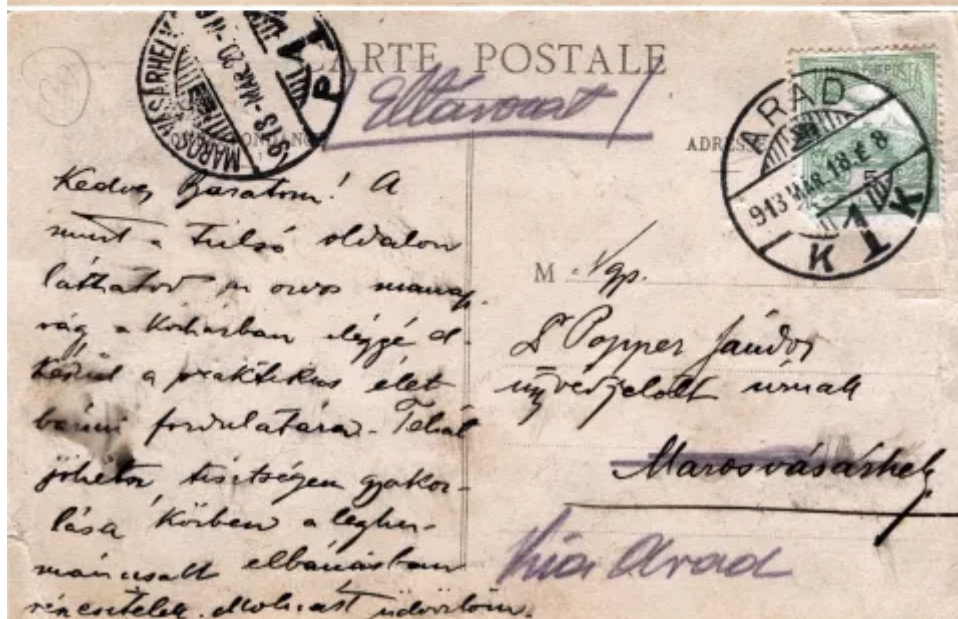 MAROSVÁSÁRHELY
1913 MÁR. 20.
1
P
CARTE POSTALE
Eltávozott
ADRESSE
MAGY. KIR. POSTA
5
ARAD
913 MÁR. 18. É 8
1
K K
Kedves Barátom! A
mint a túlsó oldalon
láthatod orvos manap-
ság a kórházban eléggé el-
készül a praktikus élet
bármi fordulatára. Tehát
jöhetsz, tisztségem gyakor-
lása körben a leghu-
mánusabb elbánásban
részesítelek.
M Ngs.
Dr Popper Sándor
ügyvédjelölt úrnak
Marosvásárhely
Kia Arad